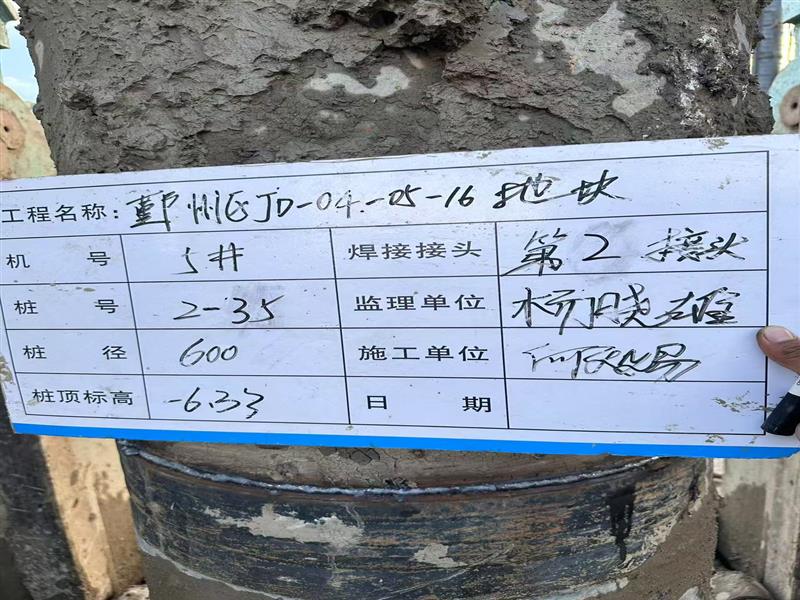 工程名称: 鄞州区JD-04-05-16地块
机号 5# 焊接接头 第2接头
桩号 2-35 监理单位 杨晓雄
桩径 600 施工单位
桩顶标高 -6.33 日期